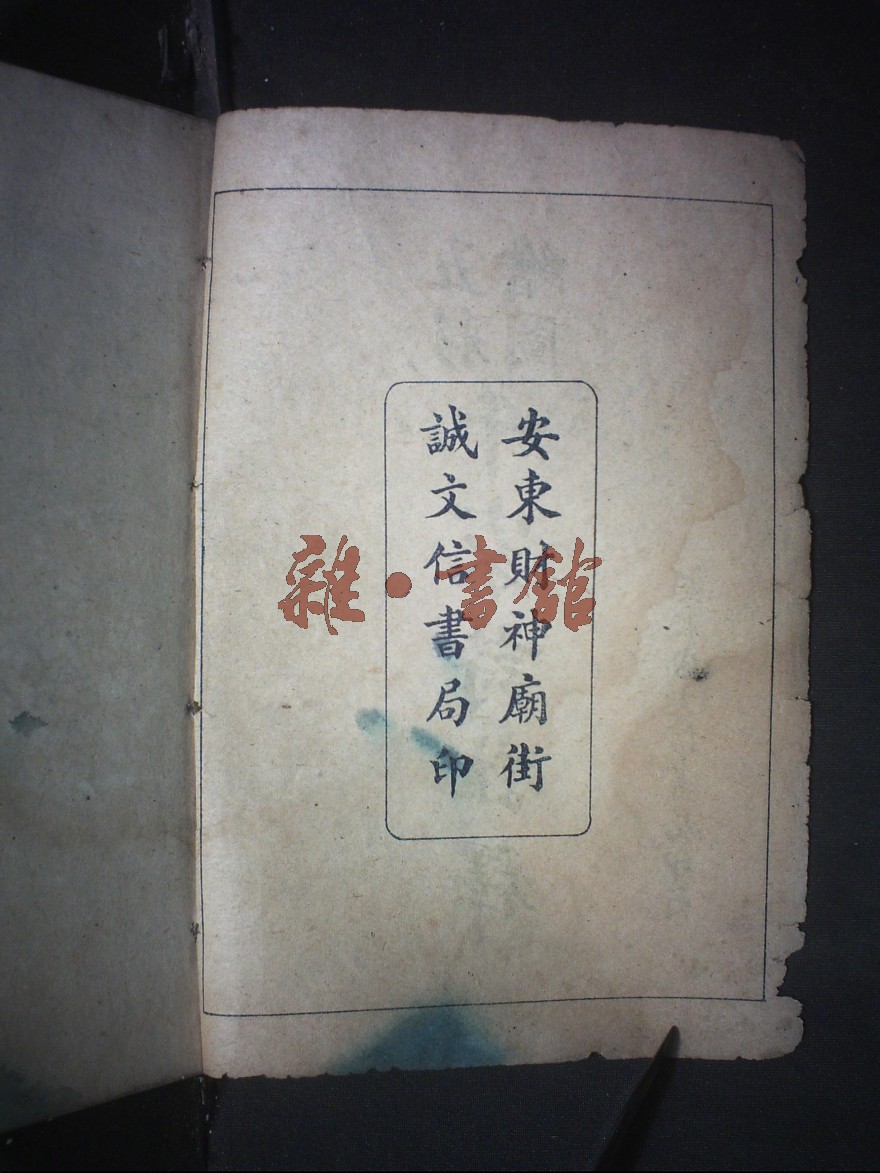 安東財神廟街
誠文信書局印
雜·書館